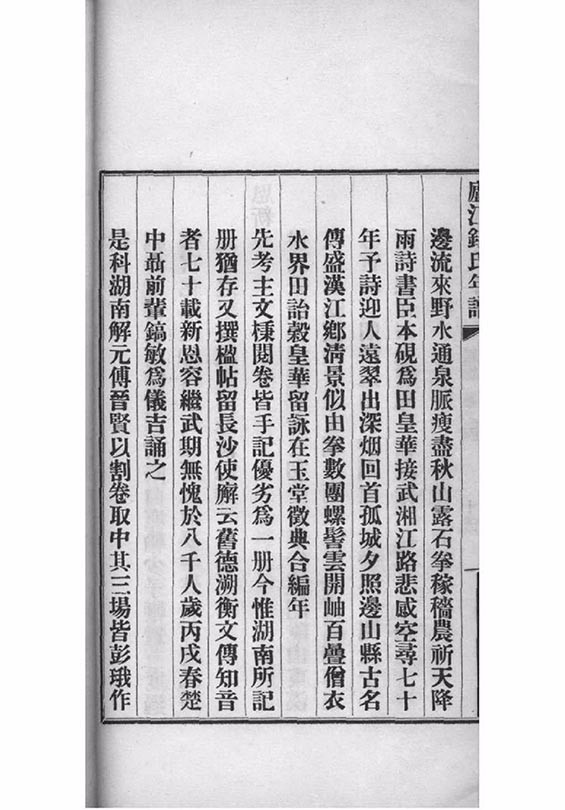 廬江錢氏年譜
邊流來野水通泉脈瘦盡秋山露石拳稼穡農祈天降
雨詩書臣本硯爲田皇華接武湘江路悲感空尋七十
年予詩迎人遠翠出深烟回首孤城夕照邊山縣古名
傳盛漢江鄉淸景似由拳數團螺髻雲開岫百疊僧衣
水界田詒穀皇華留詠在玉堂徵典合編年
先考主文秉閱卷皆手記優劣爲一册今惟湖南所記
册猶存又撰楹帖留長沙使廨云舊德溯衡文傳知音
者七十載新恩容繼武期無愧於八千人歲丙戌春楚
中聶前輩鎬敏爲儀吉誦之
是科湖南解元傅晉賢以割卷取中其三場皆彭珴作